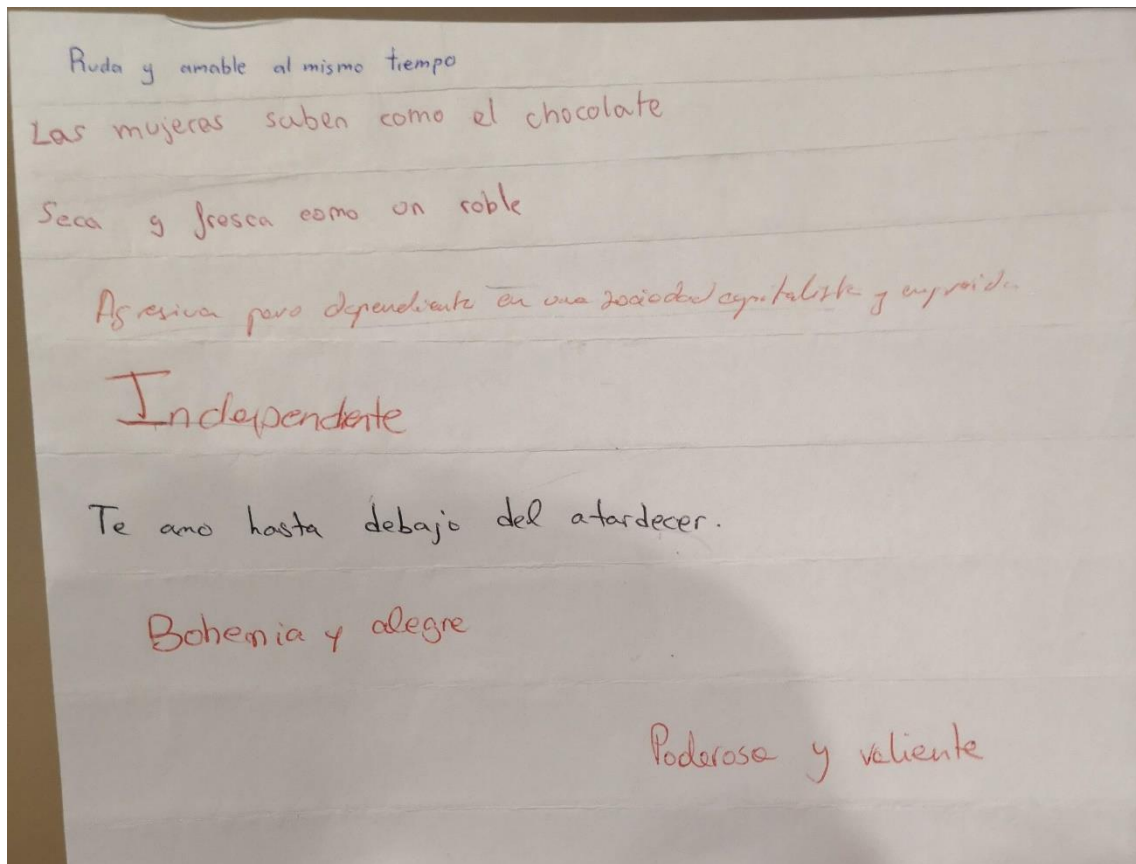 Ruda y amable al mismo tiempo
Las mujeres saben como el chocolate
Seca y fresca como un roble
Agresiva pero dependiente en una sociedad capitalista y
Independente
Te amo hasta debajo del atardecer.
Bohemia y alegre
Poderosa y valiente